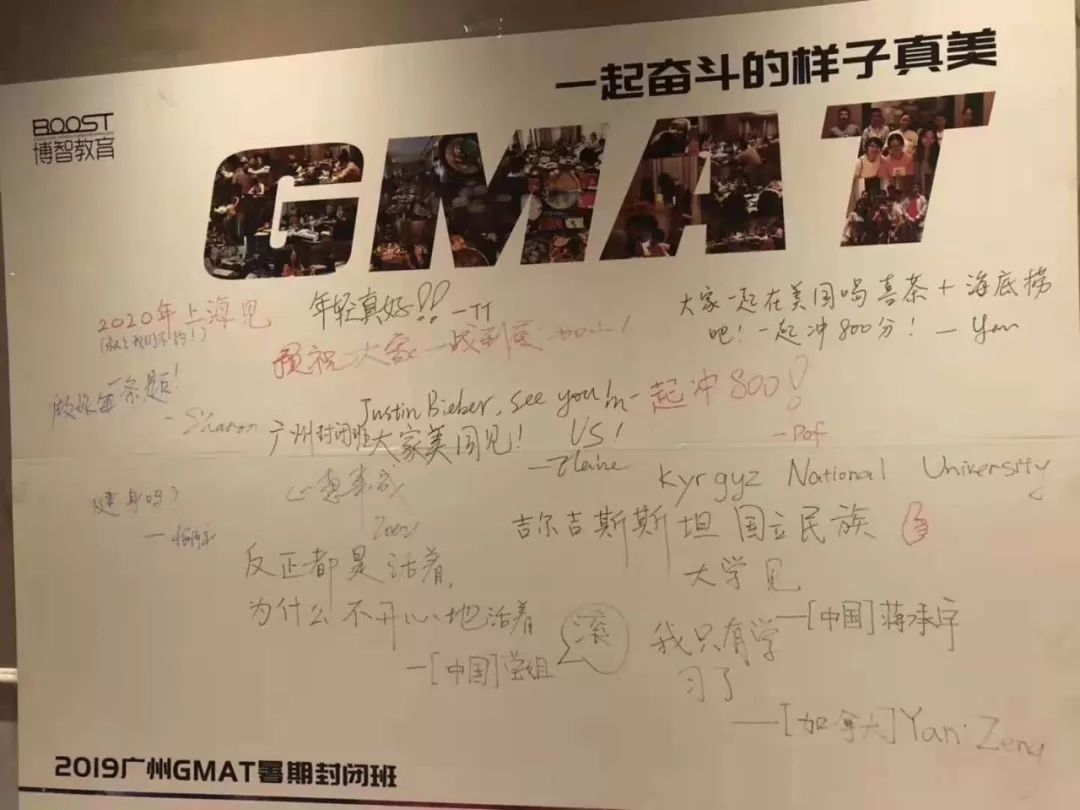 一起奋斗的样子真美
BOOST
博智教育
GMAT
2020年上海见
年轻真好!! —TT
大家一起在美国喝喜茶+海底捞
吧! 一起冲800分! — Yan
预祝大家一战到
做好每一条题!
— Sharon
Justin Bieber, see you in
US!
— Elaine
一起冲800!
广州封闭班大家美国见!
Kyrgyz National University
健身吗?
心想事成
Zoey
吉尔吉斯斯坦国立民族
大学见
—[中国]蒋承宇
反正都是活着,
为什么不开心地活着
—[中国]莹姐
滚
我只有学
习了
—[加拿大]Yani Zeng
2019广州GMAT暑期封闭班